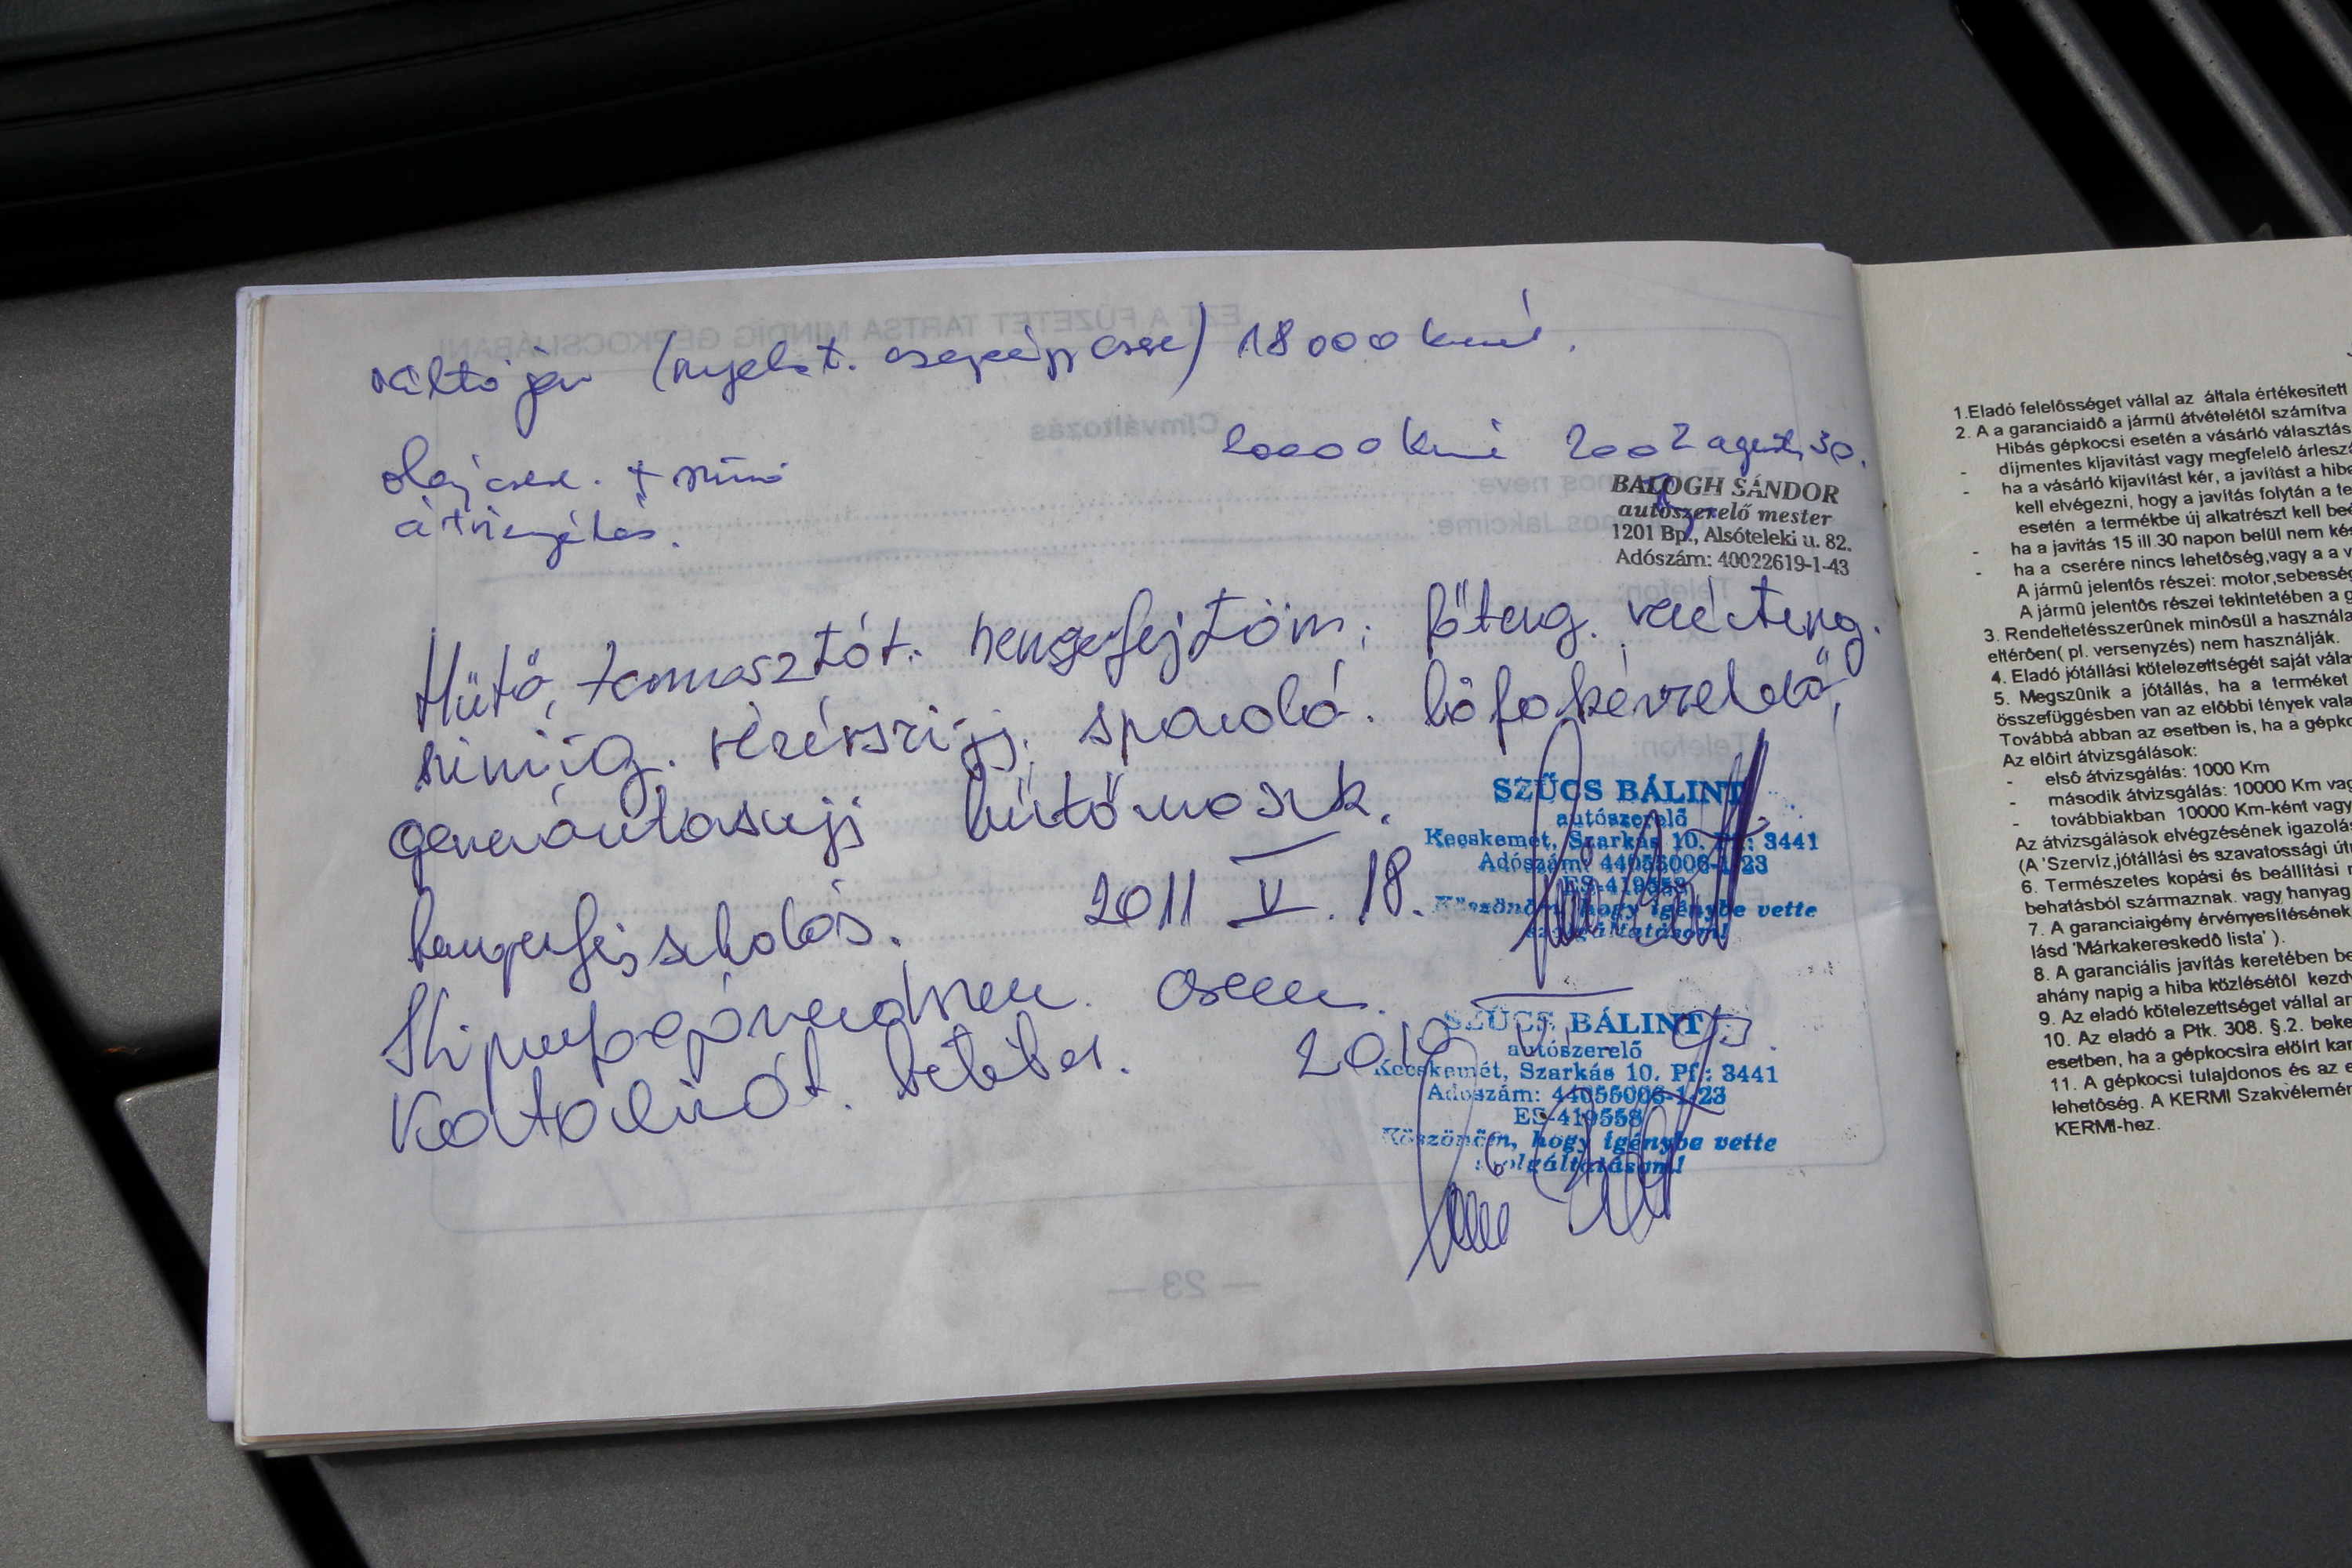 váltó jav (nyelest. csapágy csere) 18000 kmné.
olajcsere. + szűrő 20000 kmné 2002 aguszt. 30.
átvizsgálás.
BALOGH SÁNDOR
autószerelő mester
1201 Bp., Alsóteleki u. 82.
Adószám: 40022619-1-43
Hűtő, termosztót. hengerfejtöm. főteng. vezécsteng.
szimig. vezérszíjj. spanoló. hőfokérzekelő,
generátorszijj hűtőmosk.
hengerfej sikolás. 2011 V. 18.
SZŰCS BÁLINT
autószerelő
Kecskemét, Szarkás 10. Pf.: 3441
Adószám: 44055006-1-23
ES-419558
Köszönöm, hogy igénybe vette
szolgáltatásom!
csere.
2010
SZŰCS BÁLINT
autószerelő
Kecskemét, Szarkás 10. Pf.: 3441
Adószám: 44055006-1-23
ES-419558
Köszönöm, hogy igénybe vette
szolgáltatásom!
1.Eladó felelôsséget vállal az általa értékesített
2. A a garanciaidô a jármû átvételétôl számítva
Hibás gépkocsi esetén a vásárló választás
- díjmentes kijavítást vagy megfelelô árleszá
- ha a vásárló kijavítást kér, a javítást a hibe
kell elvégezni, hogy a javítás folytán a te
esetén a termékbe új alkatrészt kell beé
- ha a javítás 15 ill.30 napon belül nem kés
- ha a cserére nincs lehetôség,vagy a a v
A jármû jelentôs részei: motor,sebesség
A jármû jelentôs részei tekintetében a g
3. Rendeltetésszerûnek minôsül a használa
eltérôen( pl. versenyzés) nem használják.
4. Eladó jótállási kötelezettségét saját vála
5. Megszûnik a jótállás, ha a terméket
összefüggésben van az elôbbi tények vala
Továbbá abban az esetben is, ha a gépko
Az elôirt átvizsgálások:
- elsô átvizsgálás: 1000 Km
- második átvizsgálás: 10000 Km vag
- továbbiakban 10000 Km-ként vagy
Az átvizsgálások elvégzésének igazolás
(A 'Szervíz,jótállási és szavatossági útr
6. Természetes kopási és beállítási r
behatásból származnak. vagy hanyag
7. A garanciaigény érvényesítésének
lásd 'Márkakereskedô lista' ).
8. A garanciális javítás keretében be
ahány napig a hiba közlésétôl kezdv
9. Az eladó kötelezettséget vállal ar
10. Az eladó a Ptk. 308. §.2. beke
esetben, ha a gépkocsira elöírt kar
11. A gépkocsi tulajdonos és az e
lehetôség. A KERMI Szakvélemér
KERMI-hez.